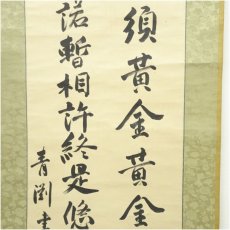 須黃金黃金
諾暫相許終是悠
青渕書